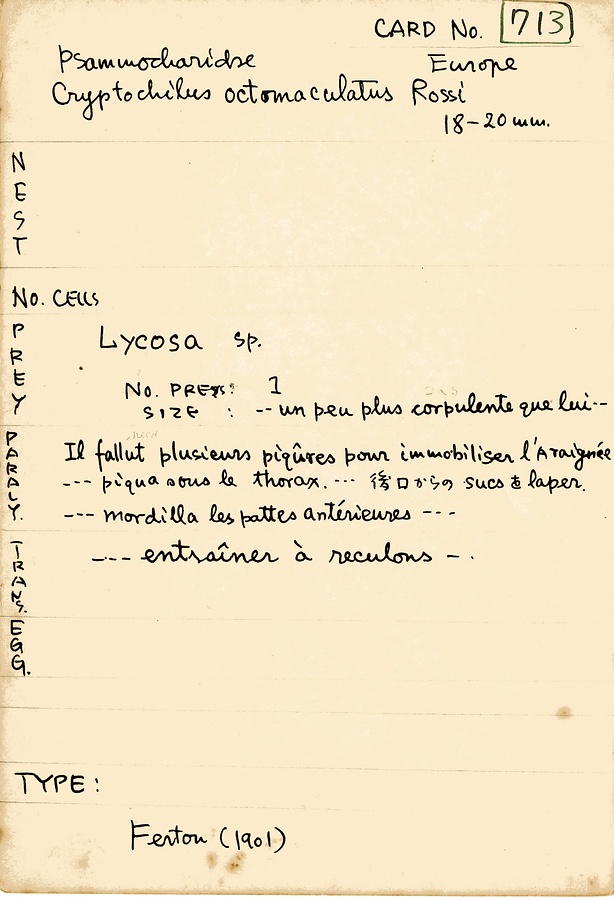 CARD No. 713
Psammocharidse Europe
Cryptochilus octomaculatus Rossi
18-20 mm.
NEST
No. CELLS
PREY
Lycosa sp.
No. PREYS: 1
SIZE : -- un peu plus corpulente que lui--
PARALY.
Il fallut plusieurs piqûres pour immobiliser l'Araignée
--- piqua sous le thorax. --- 後口からの sucs を laper.
--- mordilla les pattes antérieures ---
TRANS.
--- entraîner à reculons - .
EGG.
TYPE:
Ferton (1901)